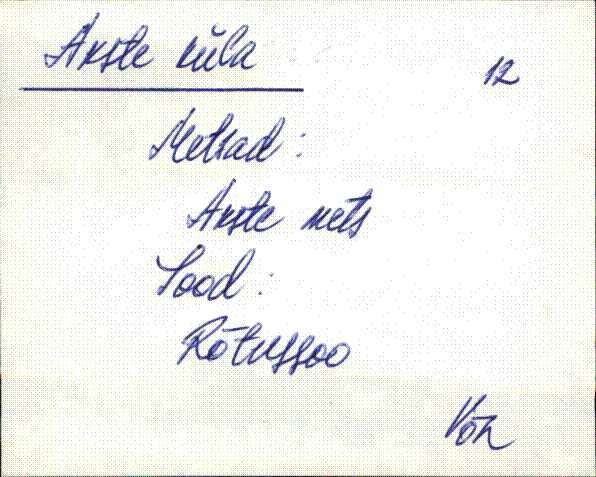 Akste küla
12
Metsad:
Akste mets
Sood:
Rõtussoo
Võn